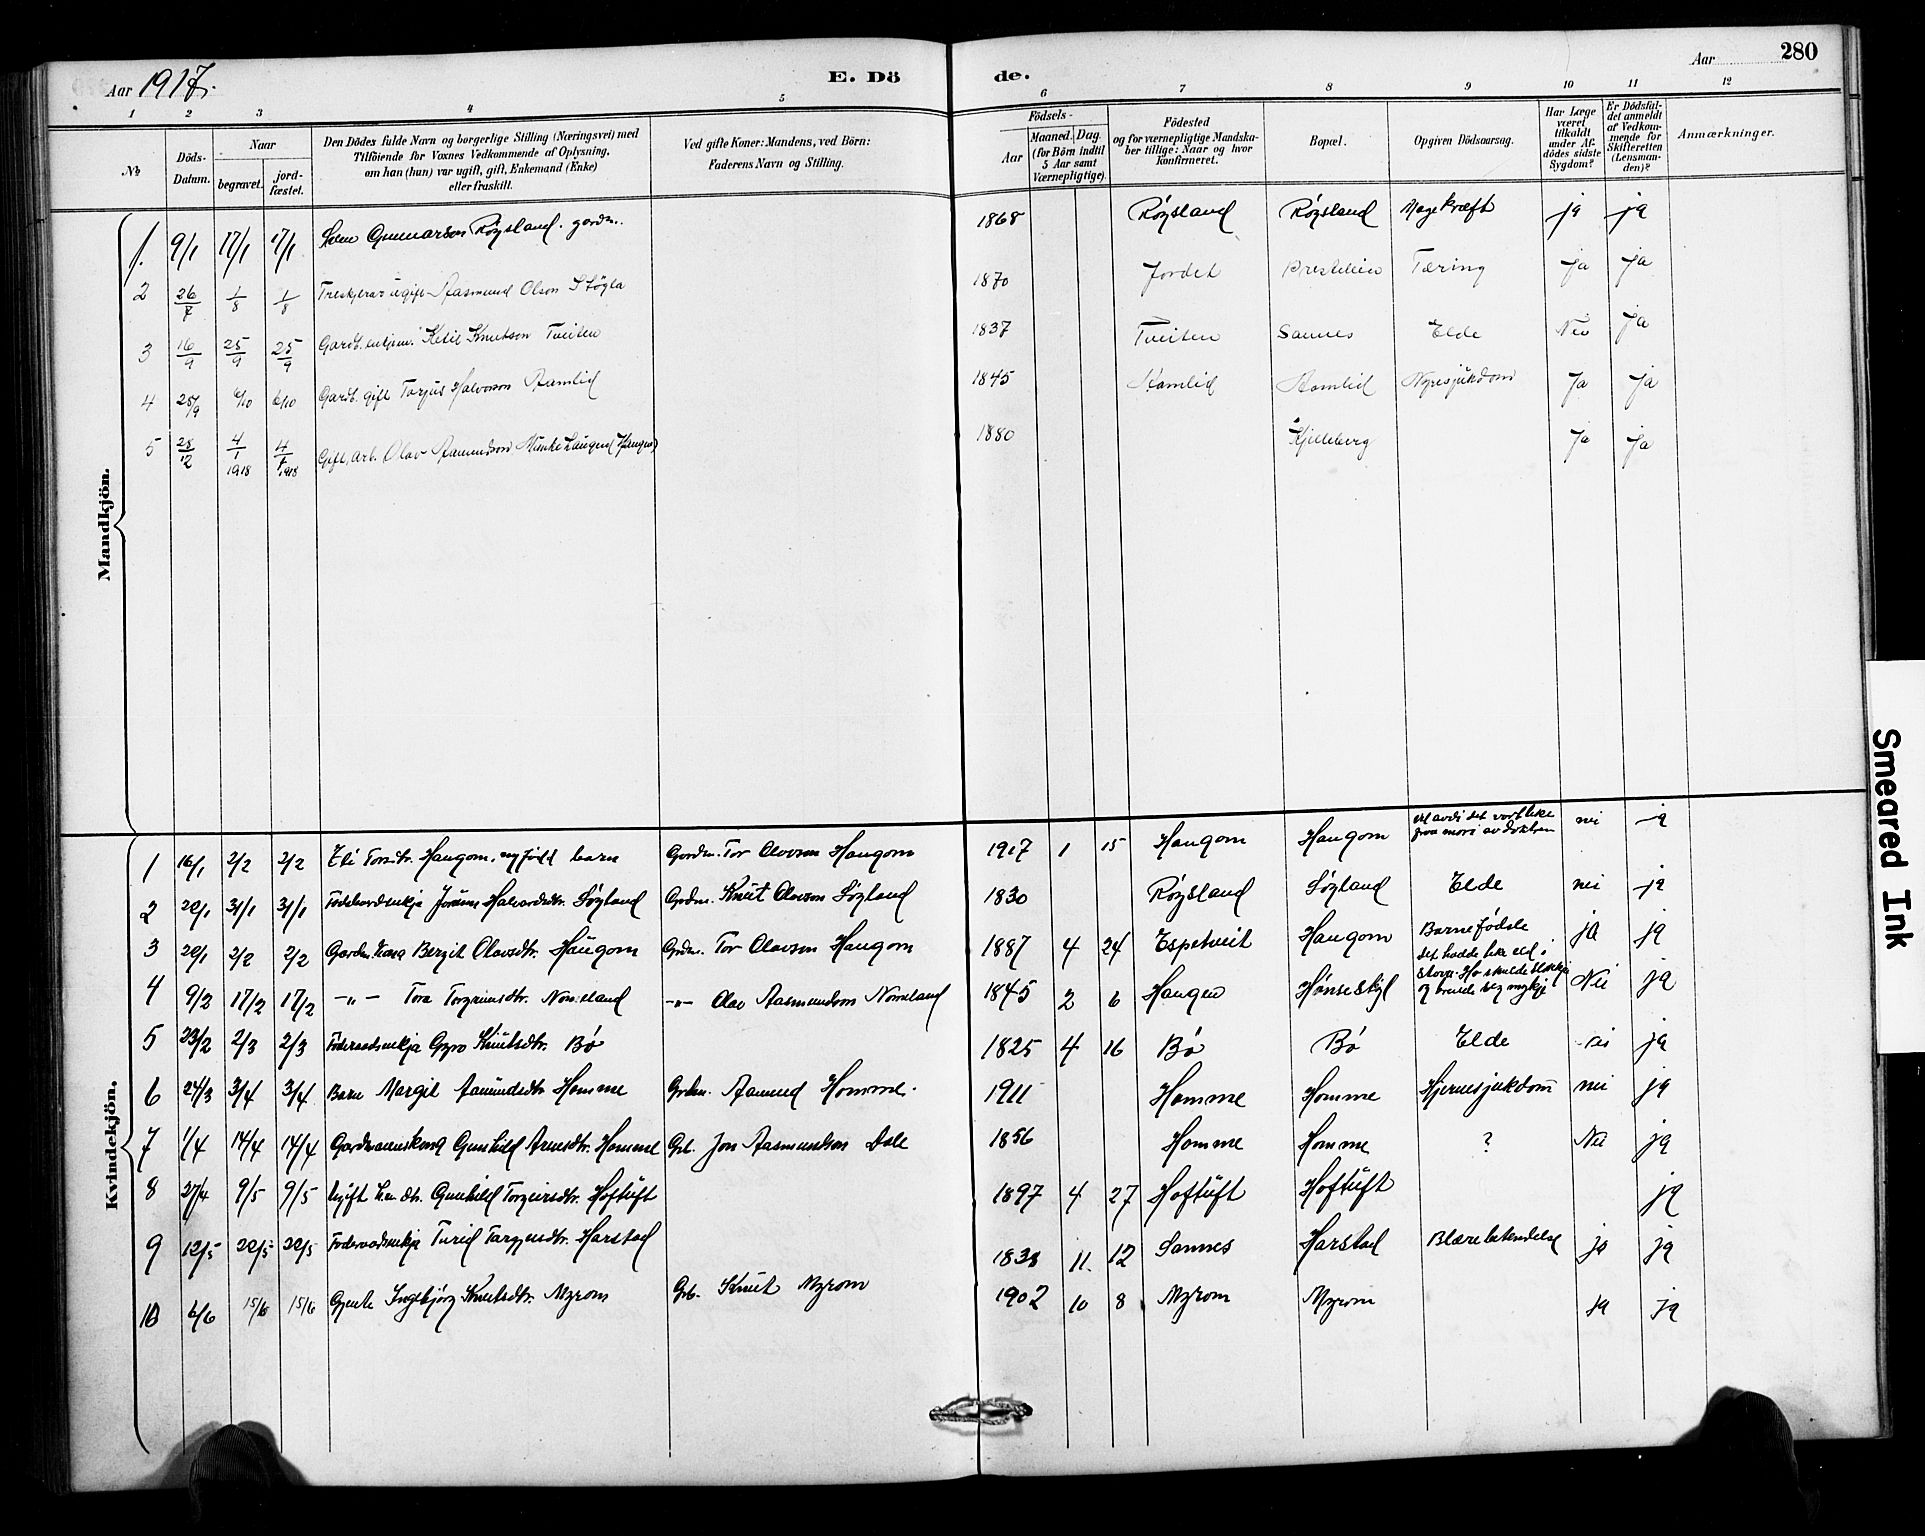 Aar 1917.
E. Dö de.
Aar 280
1 2 3 4 5 6 7 8 9 10 11 12
№
Döds-Datum.
Naar
begravet.
jordfæstet.
Den Dödes fulde Navn og borgerlige Stilling (Næringsvei) med
Tilföiende for Voxnes Vedkommende af Oplysning,
om han (hun) var ugift, gift, Enkemand (Enke)
eller fraskilt.
Ved gifte Koner: Mandens, ved Börn:
Faderens Navn og Stilling.
Födsels-
Aar
Maaned. Dag.
(for Börn indtil
5 Aar samt
Værnepligtige).
Födested
og for værnepligtige Mandskaber tillige: Naar og hvor
konfirmeret.
Bopæl.
Opgiven Dödsaarsag.
Har Læge
været
tilkaldt
under Afdödes sidste
Sygdom?
Er Dödsfaldet anmeldt
af Vedkommende for
Skifteretten
(Lensmanden)?
Anmærkninger.
Mandkjön.
1. 9/1 17/1 17/1 Gunnarson Røysland. gardm. 1868 Røysland Røysland Magekræft ja ja
2 26/7 1/8 1/8 ugift Aasmund Olson Støyla 1870 Jordet Tæring Ja Ja
3 16/9 25/9 25/9 Ketil Knutson Tveiten 1837 Tveiten Sannes Elde Nei Ja
4 25/9 6/10 6/10 Gardb. gift Torjus Halvorson Aamlid 1845 Aamlid Aamlid Nyresjukdom Ja Ja
5 28/12 4/1 1918 4/1 1918 Gift, arb. Olav Aamundson (Haugen) 1880 Kjelleberg Ja Ja
Kvindekjön.
1 16/1 2/2 2/2 Torsdtr. Haugom, nyfødd barn Gardm. Tor Olavson Haugom 1917 1 15 Haugom Haugom nei ja
2 20/1 31/1 31/1 Halvardsdtr. Løyland Gardm. Knut Olavson Løyland 1830 Røysland Løyland Elde nei ja
3 20/1 2/2 2/2 Gardm. kona Bergit Olavsdtr. Haugom Gardm. Tor Olavson Haugom 1887 4 24 Espetveit Haugom Barnefødsle ja ja
4 9/2 17/2 17/2 -"- Tora Torgrimsdtr. Nomeland -"- Olav Aasmundson Nomeland 1845 2 6 Haugen Hønseskyl Nei ja
5 23/2 2/3 2/3 Føderaadsenkja Gyro Knutsdtr. Bø 1825 4 16 Bø Bø Elde nei ja
6 24/3 3/4 3/4 Barn Margit Aamundsdtr. Homme Gardm. Aamund Homme. 1911 Homme Homme Hjernesjukdom nei ja
7 1/4 14/4 14/4 Gardmannskona Gunhild Arnesdtr. Homme Gb. Jon Aasmundson Dale 1856 Homme Homme ? Nei ja
8 27/4 9/5 9/5 Ugift Gunhild Torgeirsdtr. Hoftuft 1897 4 27 Hoftuft Hoftuft ja
9 12/5 20/5 20/5 Føderaadsenkja Turid Targjeisdtr. Harstad 1838 11. 12 Sannes Harstad Blærebetendelse ja ja
10 6/6 15/6 15/6 Gjente Ingebjørg Knutsdtr. Myrom Gb. Knut Myrom 1902 10 8 Myrom Myrom ja ja
Smeared Ink